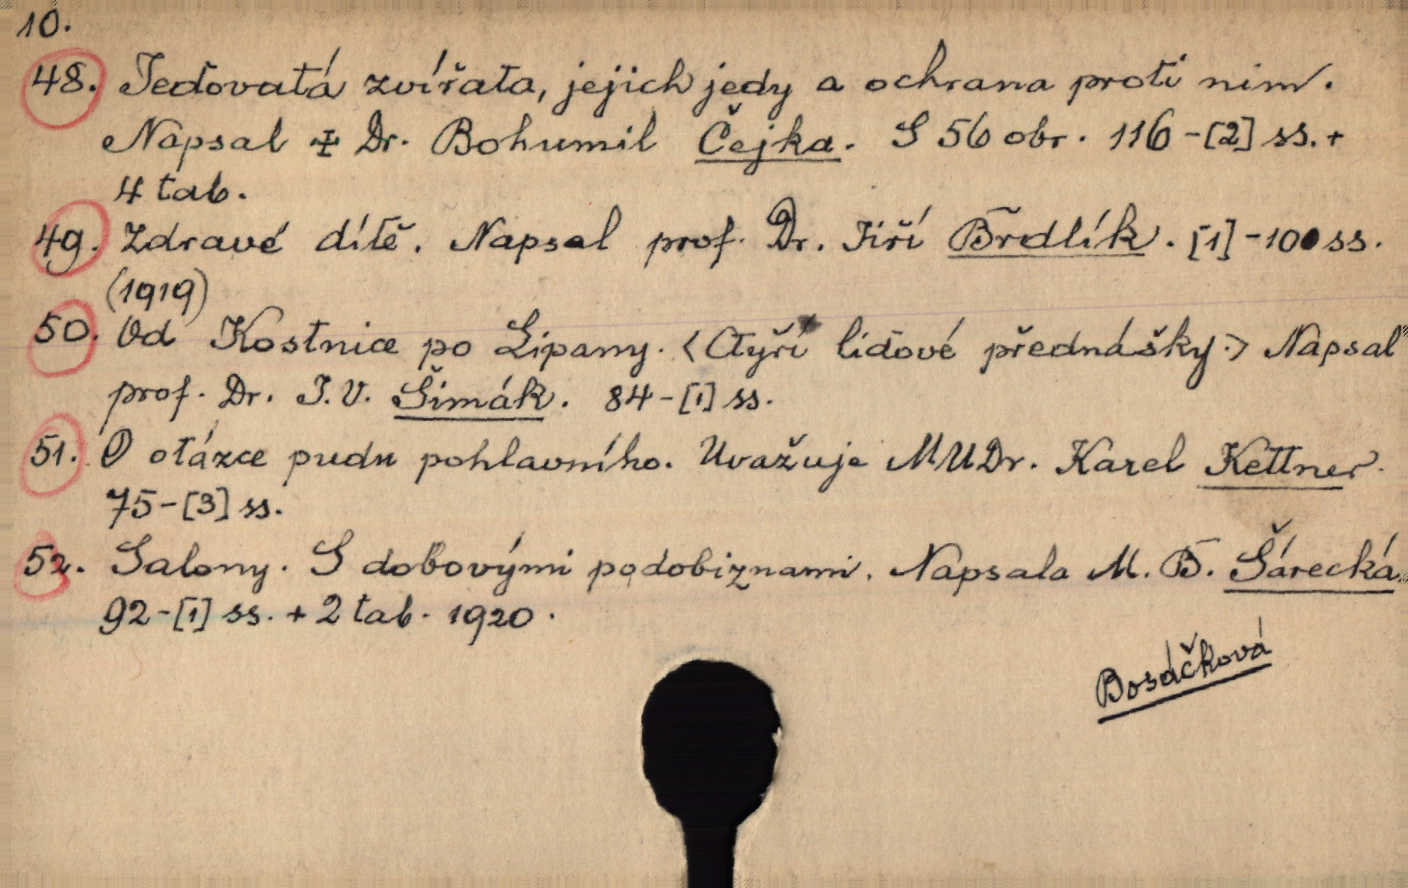 10.
48. Jedovatá zvířata, jejich jedy a ochrana proti nim.
Napsal ✠ Dr. Bohumil Čejka. S 56 obr. 116-[2] ss. +
4 tab.
49. Zdravé dítě. Napsal prof. Dr. Jiří Brdlík. [1]-100 ss.
(1919)
50. Od Kostnice po Lipany. <Čtyři lidové přednášky.> Napsal
prof. Dr. J. V. Šimák. 84-[1] ss.
51. O otázce pudu pohlavního. Uvažuje MUDr. Karel Kettner.
75-[3] ss.
52. Salony. S dobovými podobiznami. Napsala M. B. Šárecká.
92-[1] ss. + 2 tab. 1920.
Bosáčková